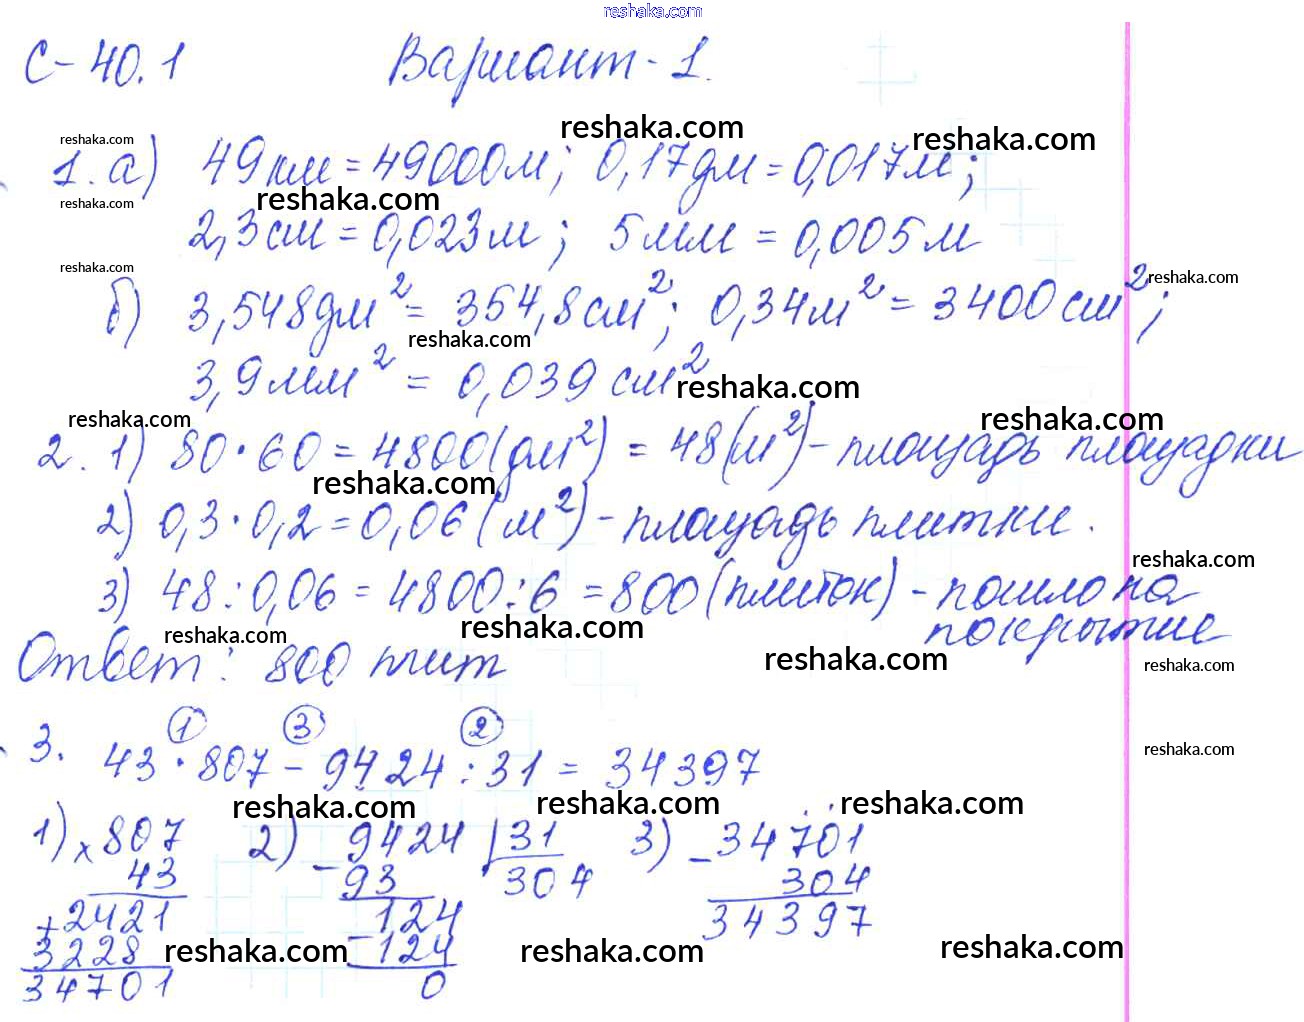 reshaka.com
С-40.1 Вариант-1.
reshaka.com reshaka.com reshaka.com
1. а) 49км = 49000м; 0,17дм = 0,017м;
reshaka.com reshaka.com
2,3см = 0,023м; 5мм = 0,005м
reshaka.com reshaka.com
б) 3,548дм² = 354,8см²; 0,34м² = 3400см²;
reshaka.com
3,9мм² = 0,039 см²
reshaka.com reshaka.com reshaka.com
2. 1) 80·60 = 4800(дм²) = 48(м²) - площадь площадки
reshaka.com
2) 0,3·0,2 = 0,06(м²) - площадь плитки.
reshaka.com
3) 48:0,06 = 4800:6 = 800(плиток) - пошло на
покрытие
reshaka.com reshaka.com reshaka.com reshaka.com
Ответ: 800 плит
① ③ ②
3. 43·807 - 9424:31 = 34397
reshaka.com
reshaka.com reshaka.com reshaka.com
1) ×807 2) -9424 |31 3) -34701
43 93 304 304
+2421 124 34397
3228 -124
reshaka.com reshaka.com reshaka.com
34701 0